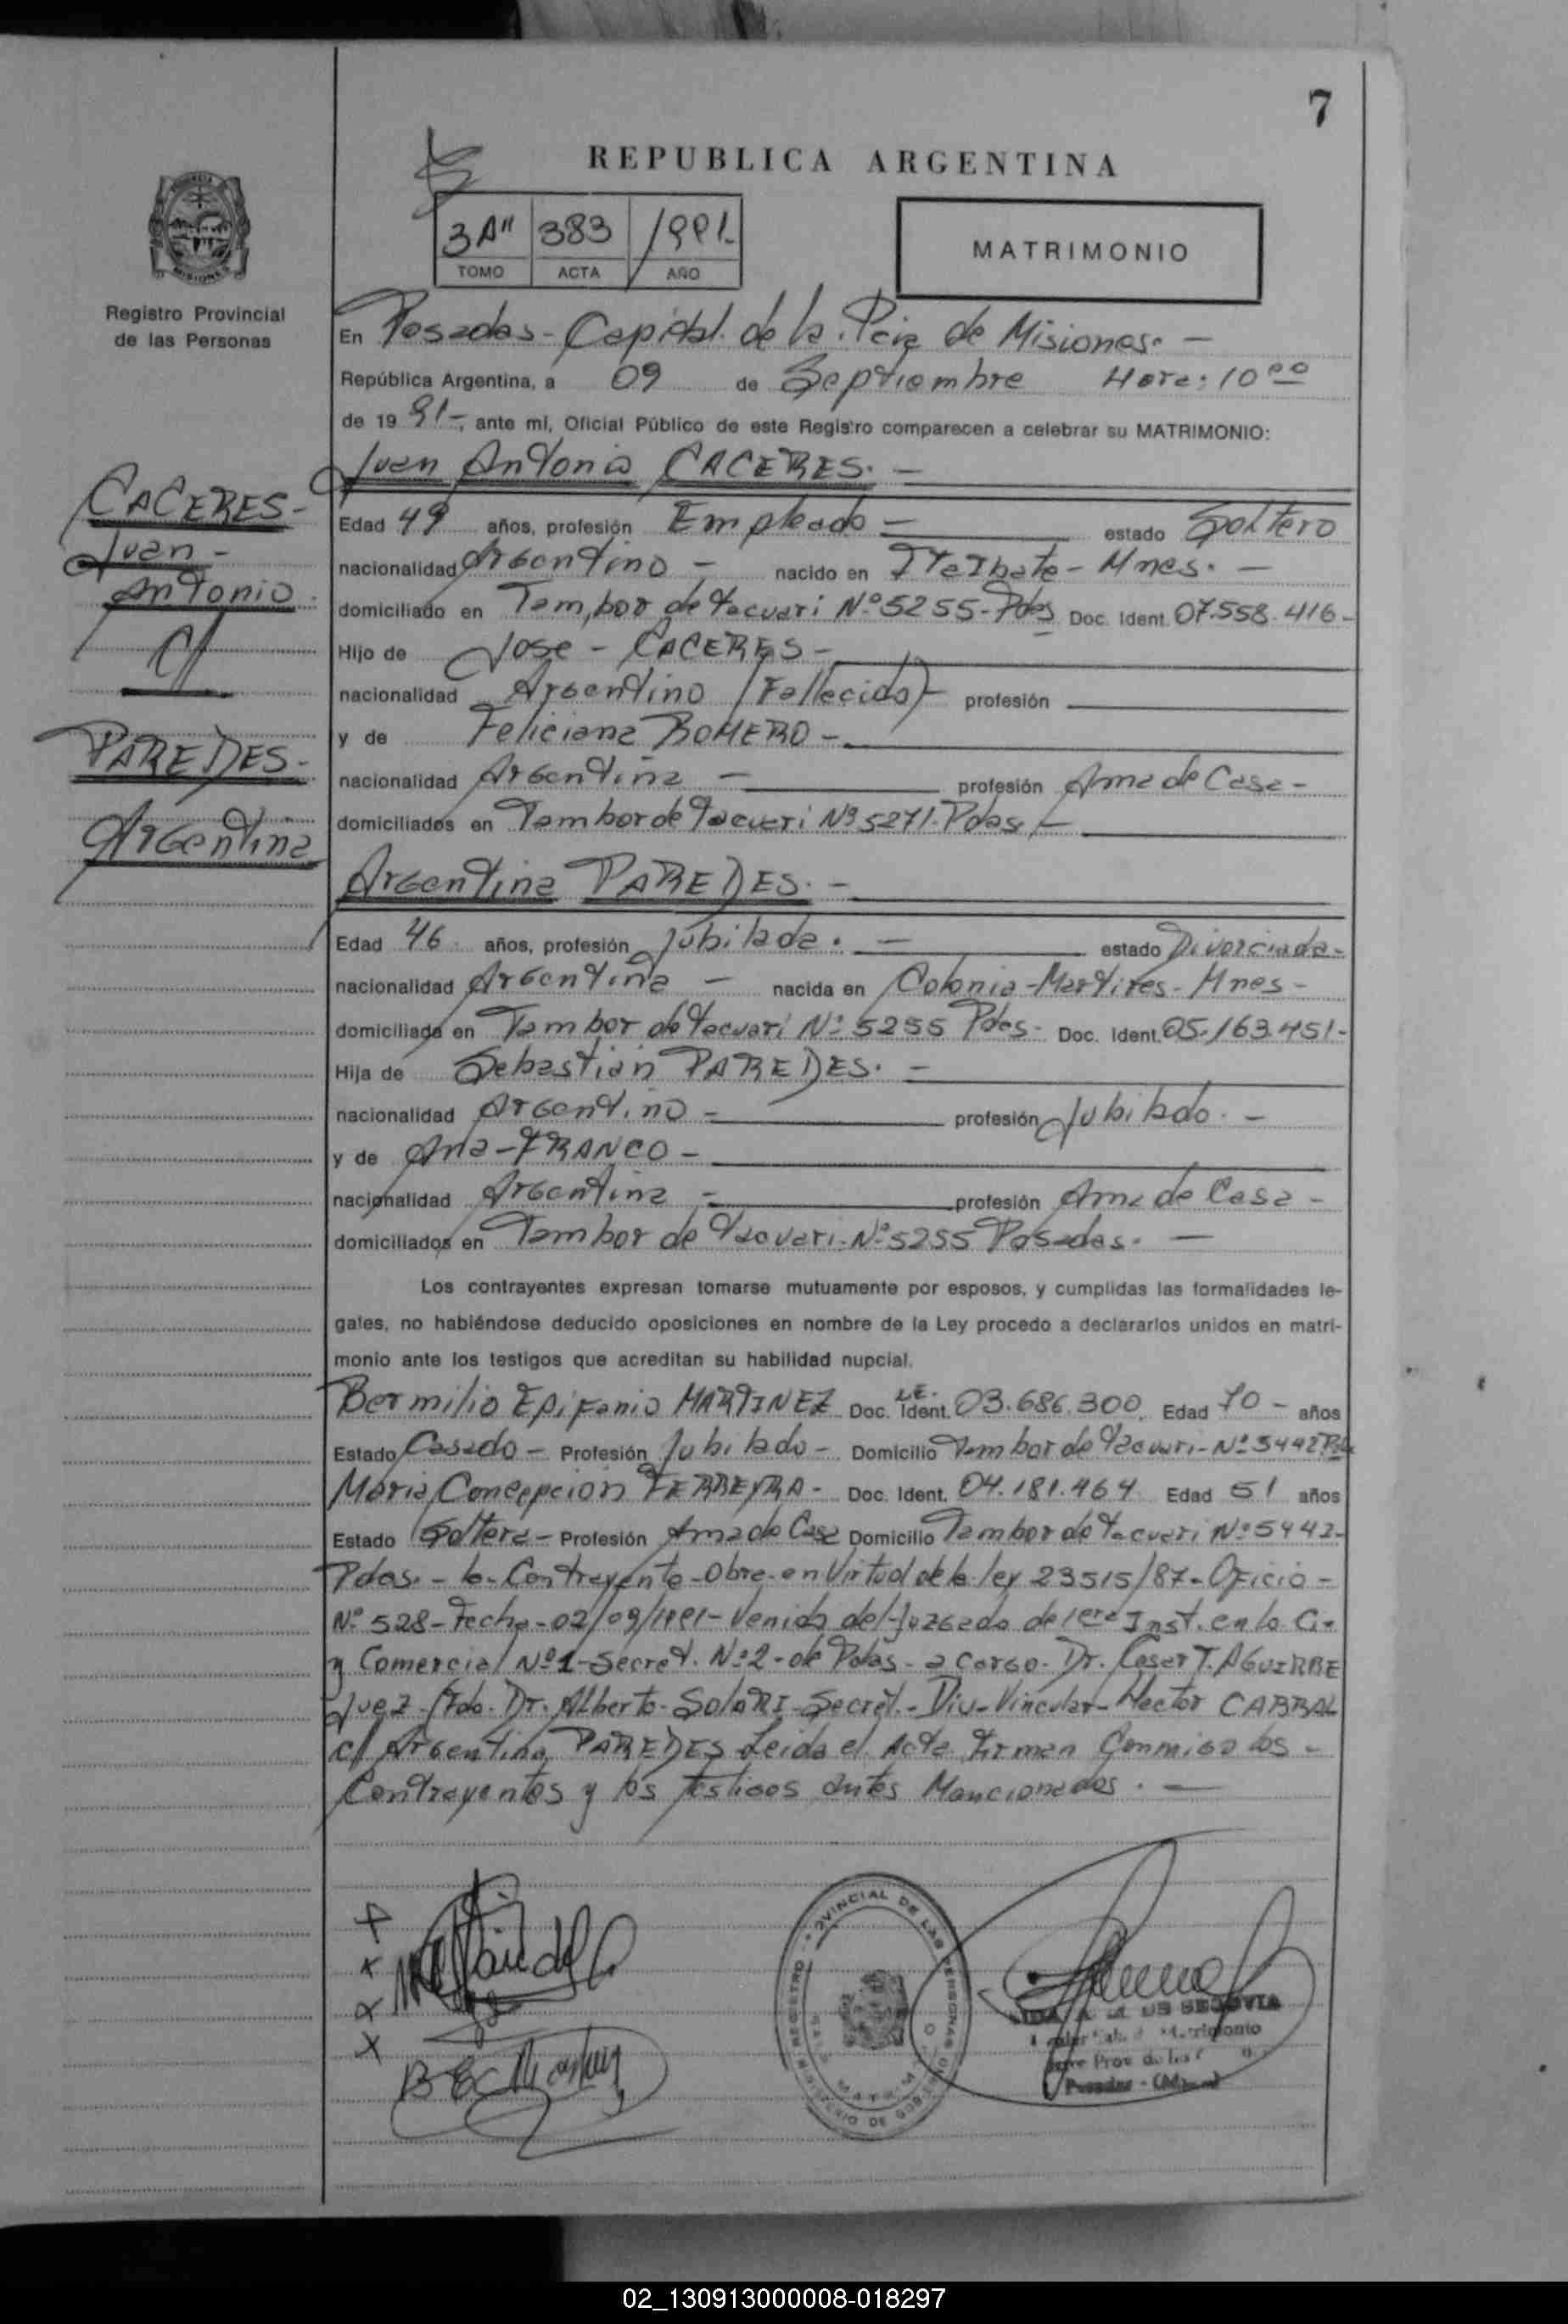 7
REPUBLICA ARGENTINA
3A" 383 1991-
TOMO ACTA AÑO
MATRIMONIO
Registro Provincial
de las Personas
En Posadas - Capital de la Pcia de Misiones. -
República Argentina, a 09 de Septiembre Hora: 10 00
de 19 91-, ante mí, Oficial Público de este Registro comparecen a celebrar su MATRIMONIO:
Juan Antonio CACERES. -
CACERES-
Juan -
Antonio.
C/
PAREDES.-
Argentina
Edad 49 años, profesión Empleado - estado Soltero
nacionalidad Argentino - nacido en Itaibate - Mnes. -
domiciliado en Tambor de tacuari Nº 5255 - Pdas Doc. Ident. 07.558.416-
Hijo de Jose - CACERES -
nacionalidad Argentino (Fallecido)- profesión
y de Feliciana ROMERO -
nacionalidad Argentina - profesión Ama de Casa -
domiciliados en Tambor de Tacuari Nº 5271-Pdas, -
Argentina PAREDES. -
Edad 46 años, profesión Jubilada. - estado Divorciada-
nacionalidad Argentina - nacida en Colonia - Martires - Mnes -
domiciliada en Tambor de tacuari Nº 5255 Pdas- Doc. Ident. 05.163.451-
Hija de Sebastian PAREDES. -
nacionalidad Argentino - profesión Jubilado. -
y de Ana - FRANCO -
nacionalidad Argentina - profesión Ama de Casa -
domiciliados en Tambor de Tacuari - Nº 5255 Posadas. -
Los contrayentes expresan tomarse mutuamente por esposos, y cumplidas las formalidades le-
gales, no habiéndose deducido oposiciones en nombre de la Ley procedo a declararlos unidos en matri-
monio ante los testigos que acreditan su habilidad nupcial.
Bermilio Epifanio MARTINEZ Doc. Ident. L.E. 03.686.300. Edad 70 - años
Estado Casado - Profesión Jubilado - Domicilio Tambor de Tacuari - Nº 5442 Pdas
Maria Concepcion FERREYRA - Doc. Ident. 04.181.464 Edad 51 años
Estado Soltera - Profesión Ama de Casa Domicilio Tambor de tacuari Nº 5442-
Pdas. - la Contrayente - Obra - en Virtud de la ley 23515/87 - Oficio -
Nº 528 - Fecha - 02/09/1991 - Venida del Juzgado de 1era Inst. en lo Ci-
y Comercial Nº 1 - Secret. Nº 2 - de Pdas - a Cargo - Dr. Cesar T. AGUIRRE
Juez - Fdo. Dr. Alberto - SOLARI - Secret. - Div - Vincular - Hector CABRAL
c/ Argentina PAREDES Leida el Acta Firman Conmigo los -
Contrayentes y los testigos antes Mencionados. -
PROVINCIAL DE LAS PERSONAS
REGISTRO
MINISTERIO DE GOBIERNO
DE SEGOVIA
Matrimonio
Posadas -
02_130913000008-018297